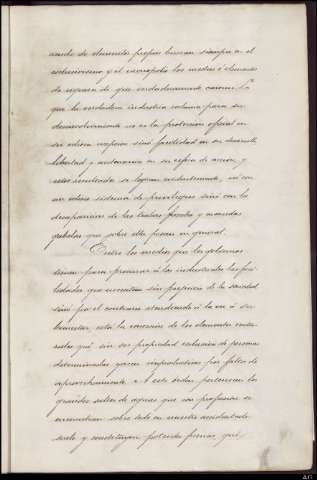 ciendo de elementos propios buscan siempre en el
exclusivismo y el monopolio los medios ó elementos
de riqueza de que verdaderamente carecen. Lo
que la verdadera industria reclama para su
desenvolvimiento no es la proteccion oficial en
su odiosa acepcion sinó facilidad en su desarrollo
libertad y autonomia en su esfera de accion, y
estos resultados se logran evidentemente, nó con
un odioso sistema de privilegios sinó con la
desaparicion de las trabas fiscales y onerosas
gabelas que sobre ella pesan en general.
Entre los medios que los gobiernos
tienen para procurar á los industriales las faci-
lidades que necesitan sin perjuicio de la sociedad
sinó por el contrario atendiendo á la vez á su
bienestar, está la concesion de los elementos natu-
rales que sin ser propiedad exclusiva de persona
determinada yacen improductivos por falta de
aprovechamiento. A este orden pertenecen los
grandes saltos de aguas que con profusion se
encuentran sobre todo en nuestro accidentado
suelo y constituyen potentes fuerzas, que